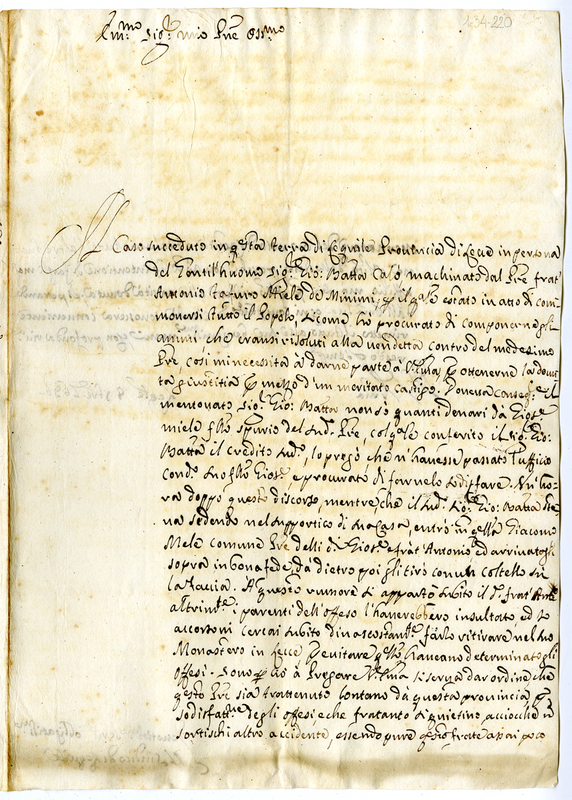 134-220
Ill.mo Sig.r mio Pre oss.mo
Il Caso succeduto in q.sta terra di Sequile Provincia di Lecce in persona
del Gentil'huomo Sig.r Gio: Batta Calò machinato dal Pre frat'
Antonio Mele de Minimi, p il q.le è stato in atto di com=
moversi tutto il Popolo, sicome hò procurato di componerne gli
animi che eransi risoluti alla vendetta contro del medesimo
Pre, così mi necessita à darne parte à V.S. Ill.ma p ottenerne la dovu=
ta giustitia p mezzo d'un meritato castigo. Doveva conseg.e il
mentovato Sig.r Gio: Batta non sò quanti denari dà Gios.e
miele f.llo spurio del sud.o Pre, col q.le conferito il Sig.r Gio:
Batta il credito sud.o, lo pregò, che n'havesse passato l'ufficio
con d.o suo f.llo Gios.e, e procurato di farnelo sodisfare. Un'ho=
ra doppo questo discorso, mentre, che il sud.o Sig.r Gio: Batta ste=
va sedendo nel supportico di sua Casa entrò in q.ella Giacomo
Mele comune Pre delli di Gios.e e frat' Antonio ed arrivatogli
sopra in bona fede, dà dietro poi gli tirò con un coltello sù
la faccia. A questo rumore si appartò subito il P. frat' Ant.o
altrim.te i parenti dell'offeso l'haverebbero insultato, ed io
accortomi cercai subito di nascostam.te farlo ritirare nel suo
Monastero in Lecce p evitare q.llo haveano determinato gli
offesi. Sono p ciò à pregare V.S. Ill.ma si serva dar ordine che
questo Pre sia trattenuto lontano da questa provincia p
sodisfatt.ne degli offesi e che fratanto si quietino, acciochè n
sortischi altro accidente, essendo pure q.sto frate assai poco